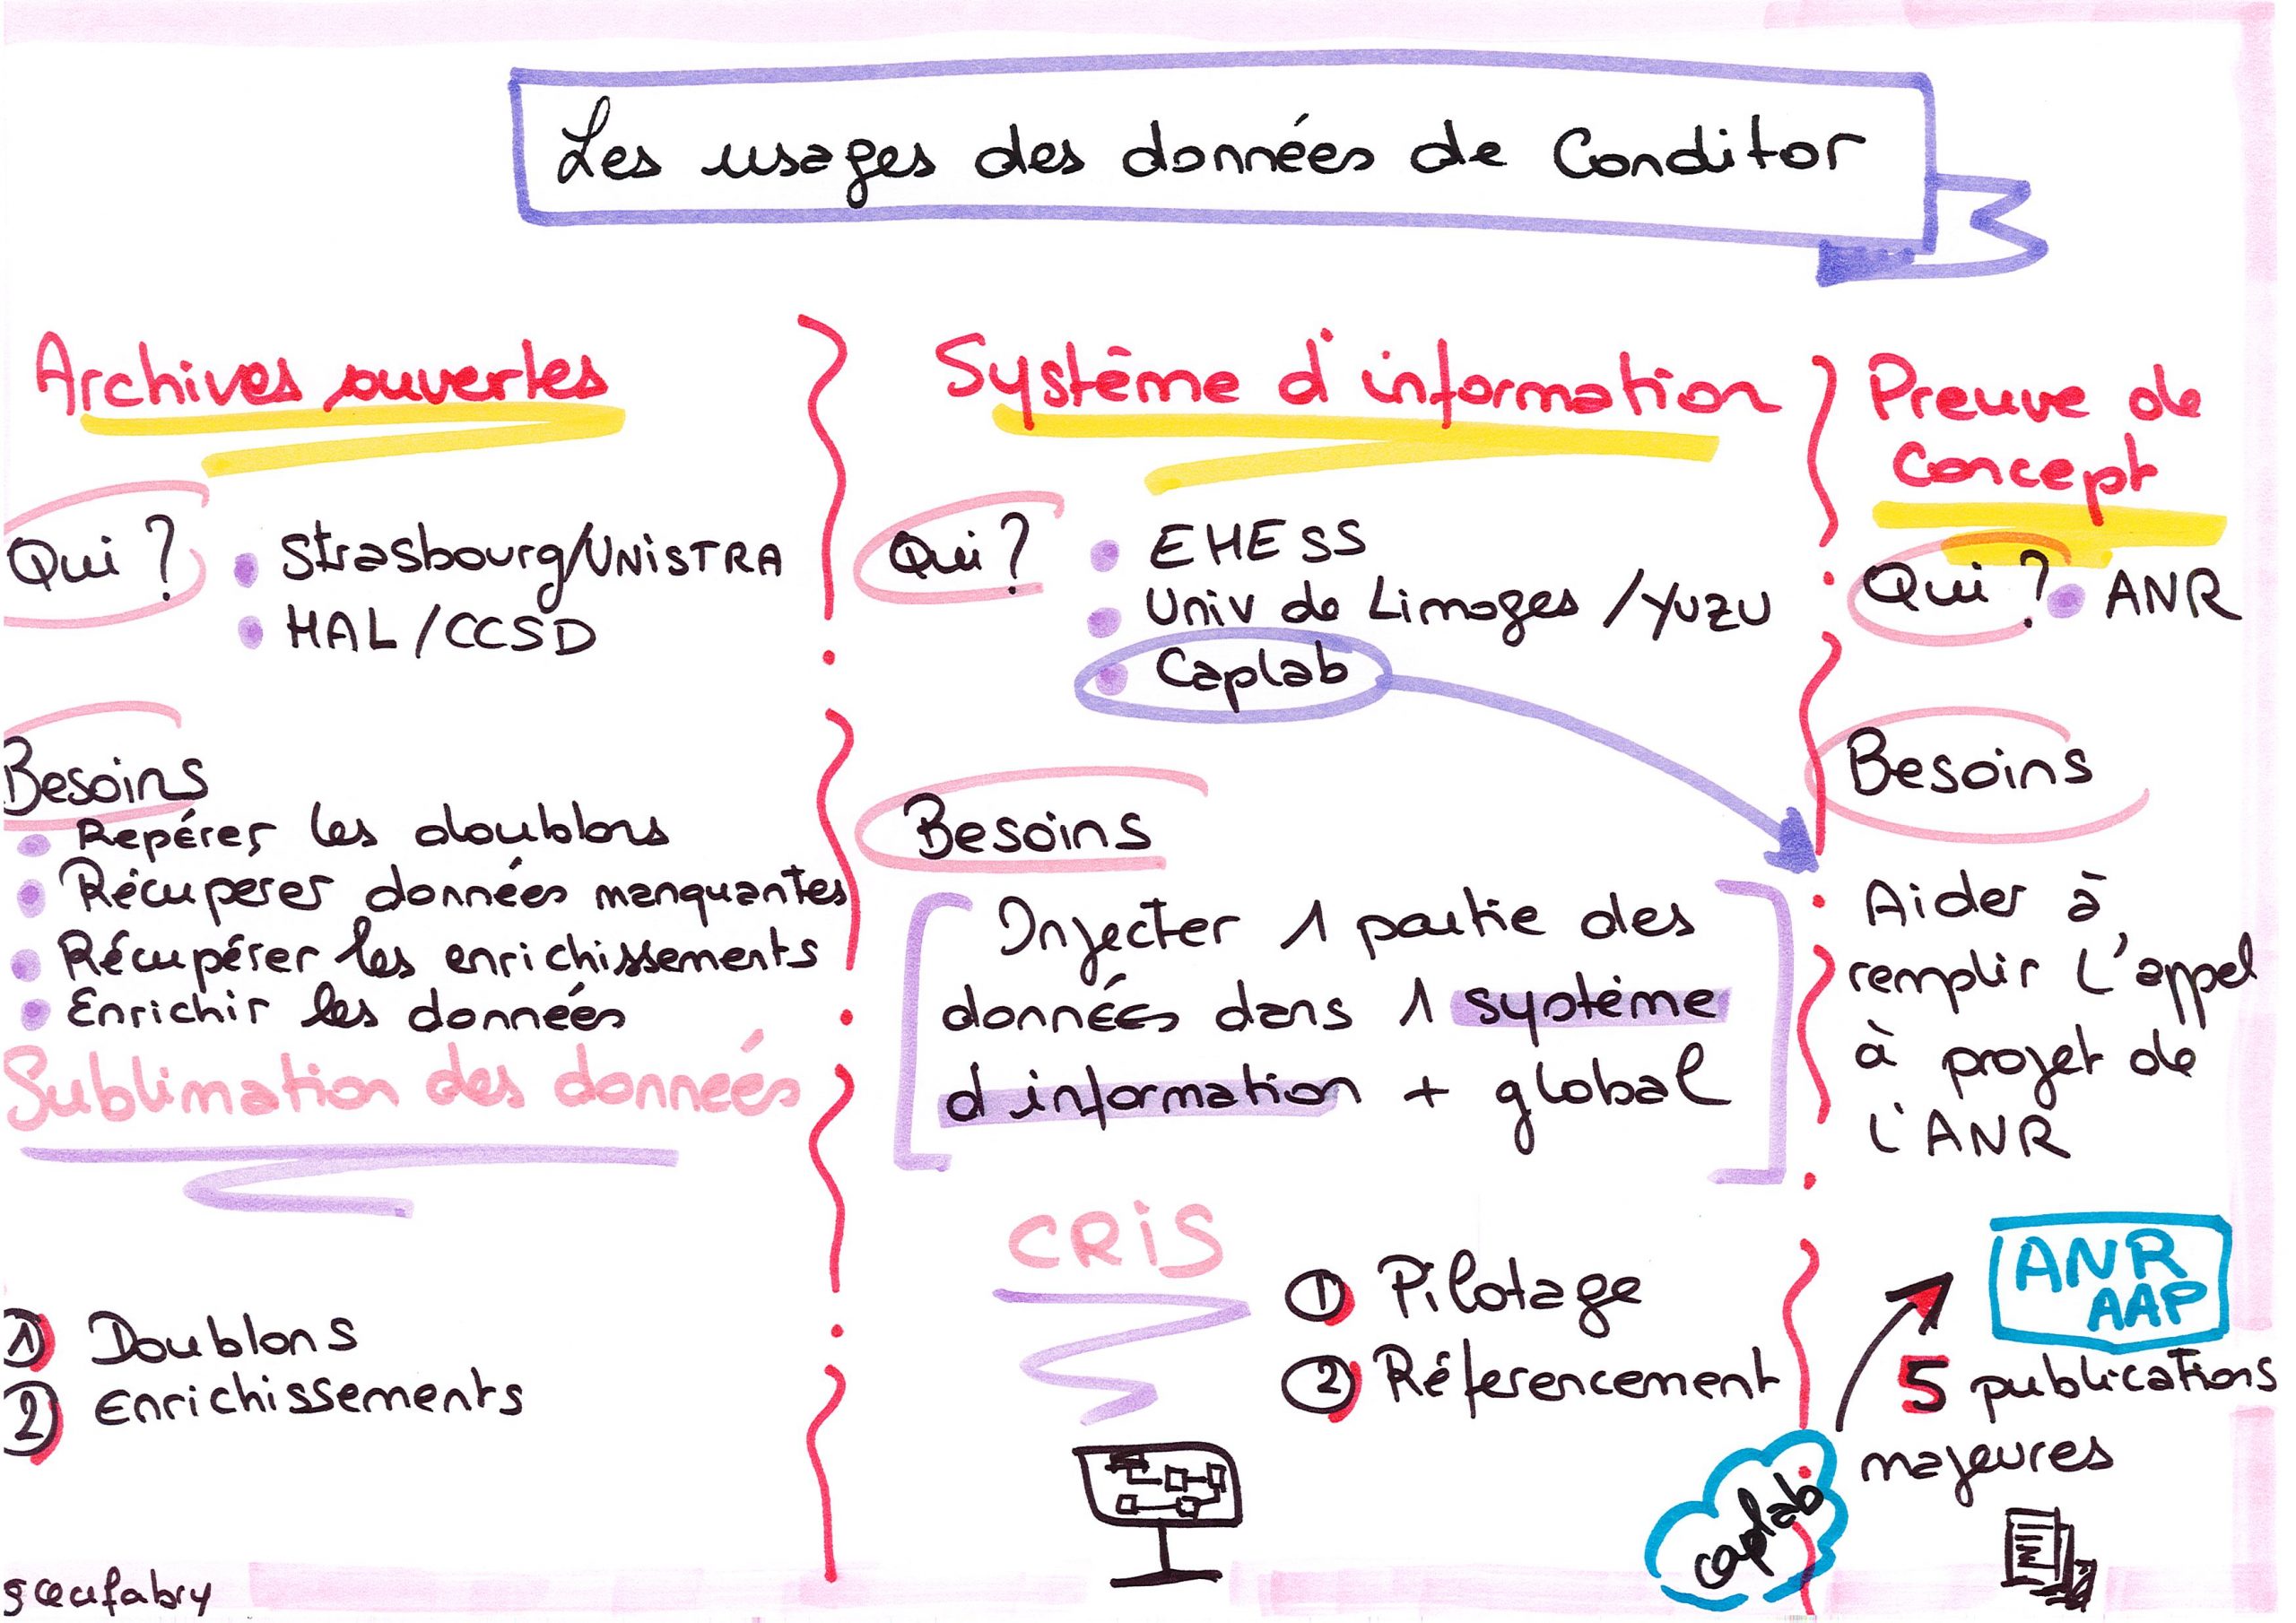 Les usages des données de Conditor
Archives ouvertes
Qui ?
Strasbourg/UNISTRA
HAL/CCSD
Besoins
Repérer les doublons
Récuperer données manquantes
Récupérer les enrichissements
Enrichir les données
Sublimation des données
1 Doublons
2 Enrichissements
Système d'information
Qui ?
EHESS
Univ de Limoges /YUZU
Caplab
Besoins
Injecter 1 partie des
données dans 1 système
d'information + global
CRiS
1 Pilotage
2 Réferencement
Preuve de
concept
Qui ?
ANR
Besoins
Aider à
remplir l'appel
à projet de
l'ANR
ANR
AAP
5 publications
majeures
caplab